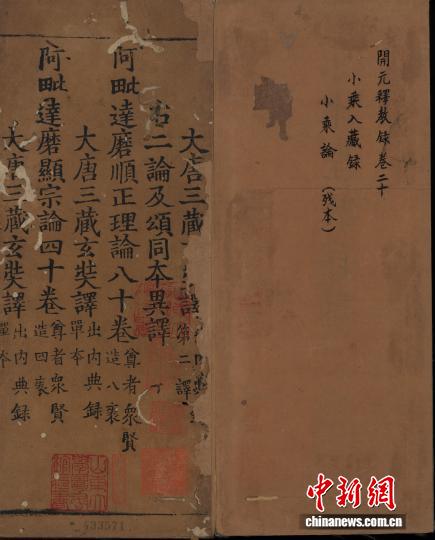 開元釋教錄卷二十
小乘入藏錄
小乘論（残本）
大唐三藏
右二論及頌同本異譯
阿毗達磨順正理論八十卷
尊者眾賢
造八袠
大唐三藏玄奘譯
出內典錄
單本
阿毗達磨顯宗論四十卷
尊者眾賢
造四袠
大唐三藏玄奘譯
出內典錄
單本
433571
中新網
chinanews.com